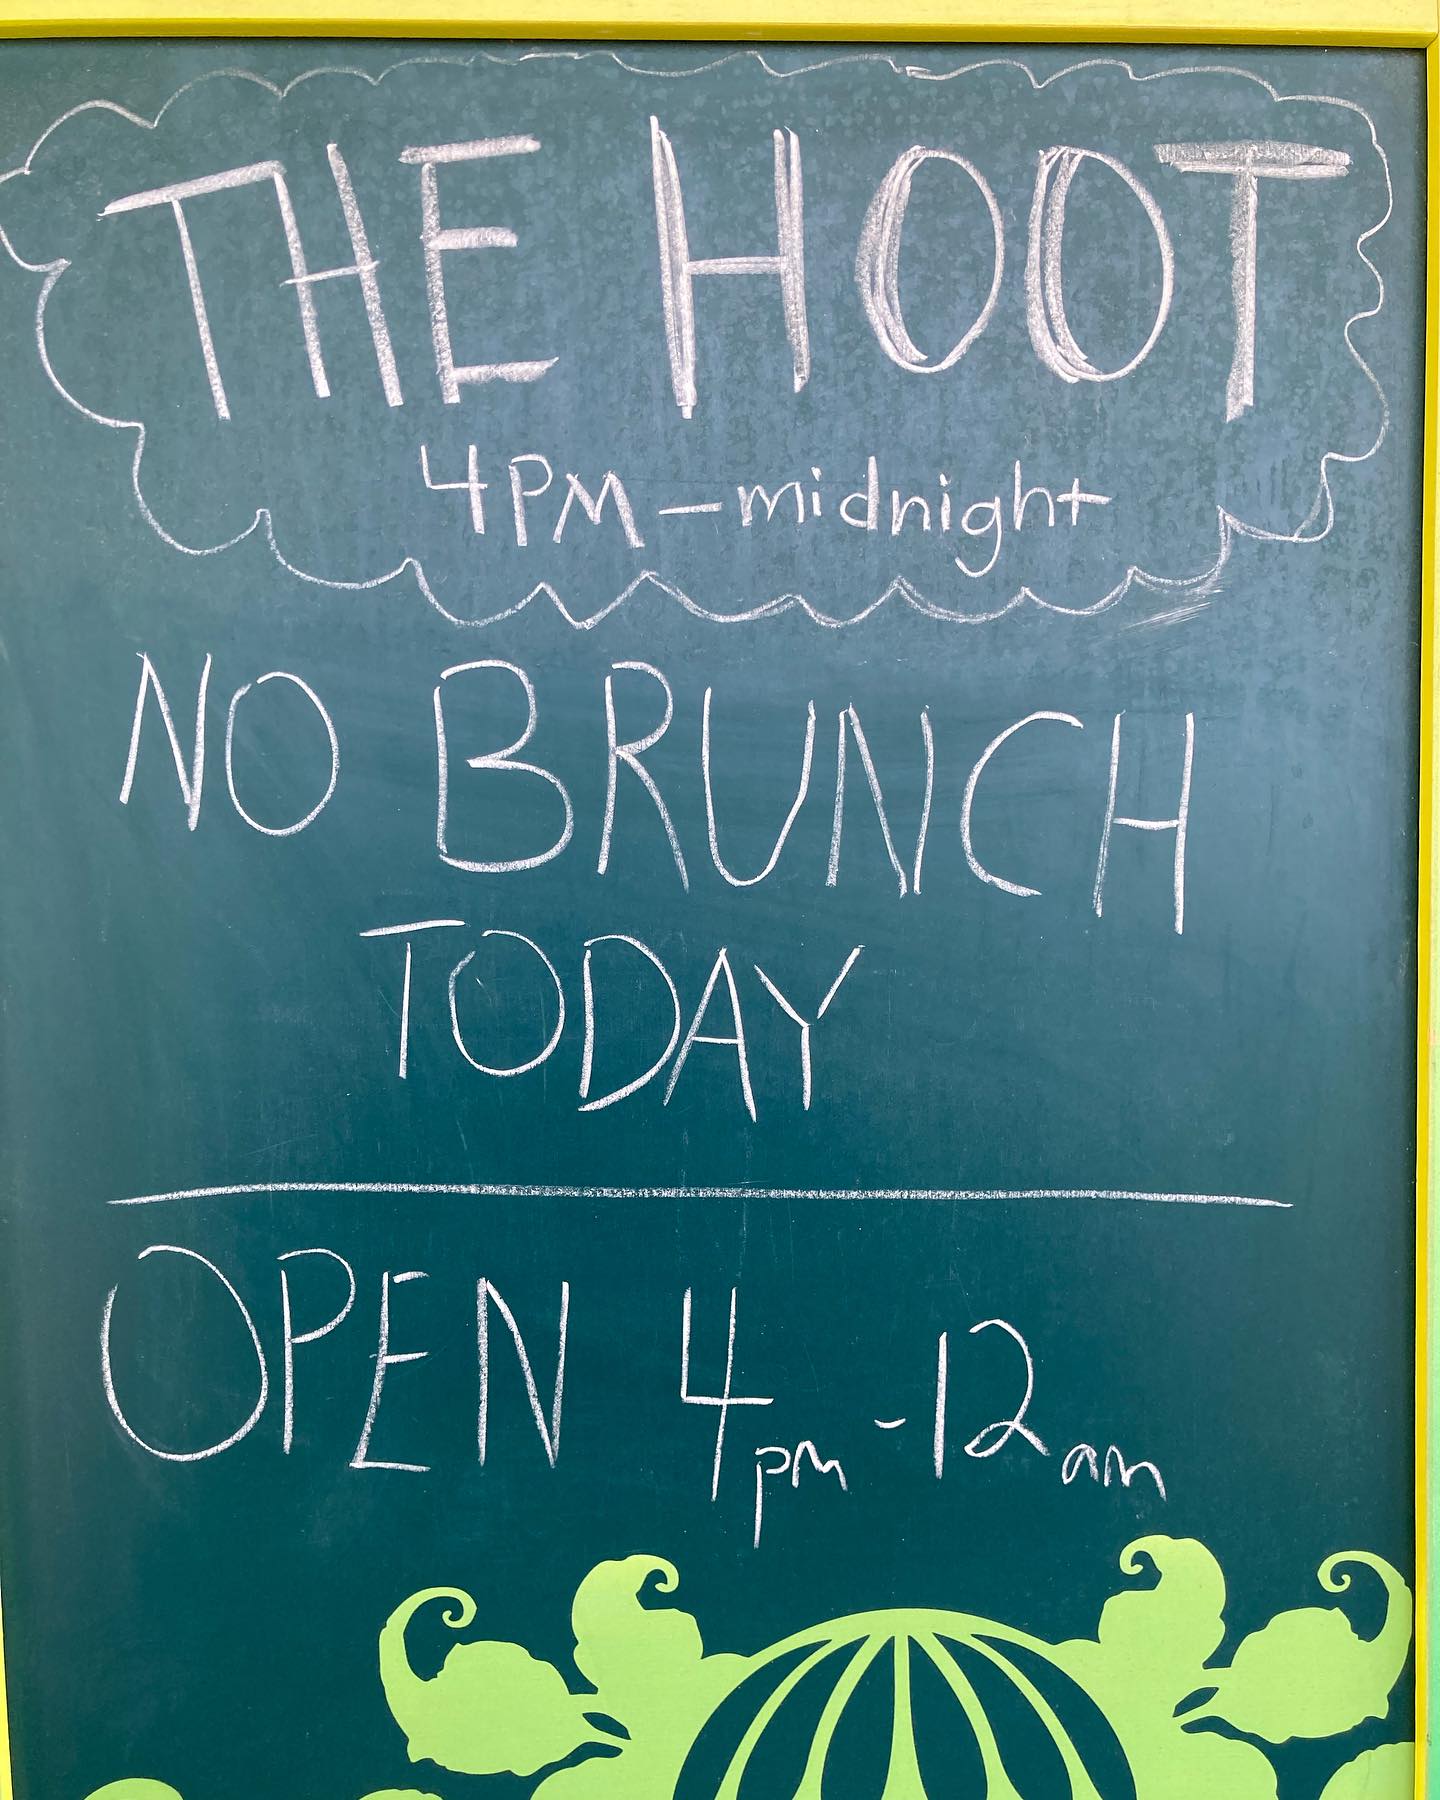 THE HOOT
4PM - midnight
NO BRUNCH
TODAY
OPEN 4pm - 12am